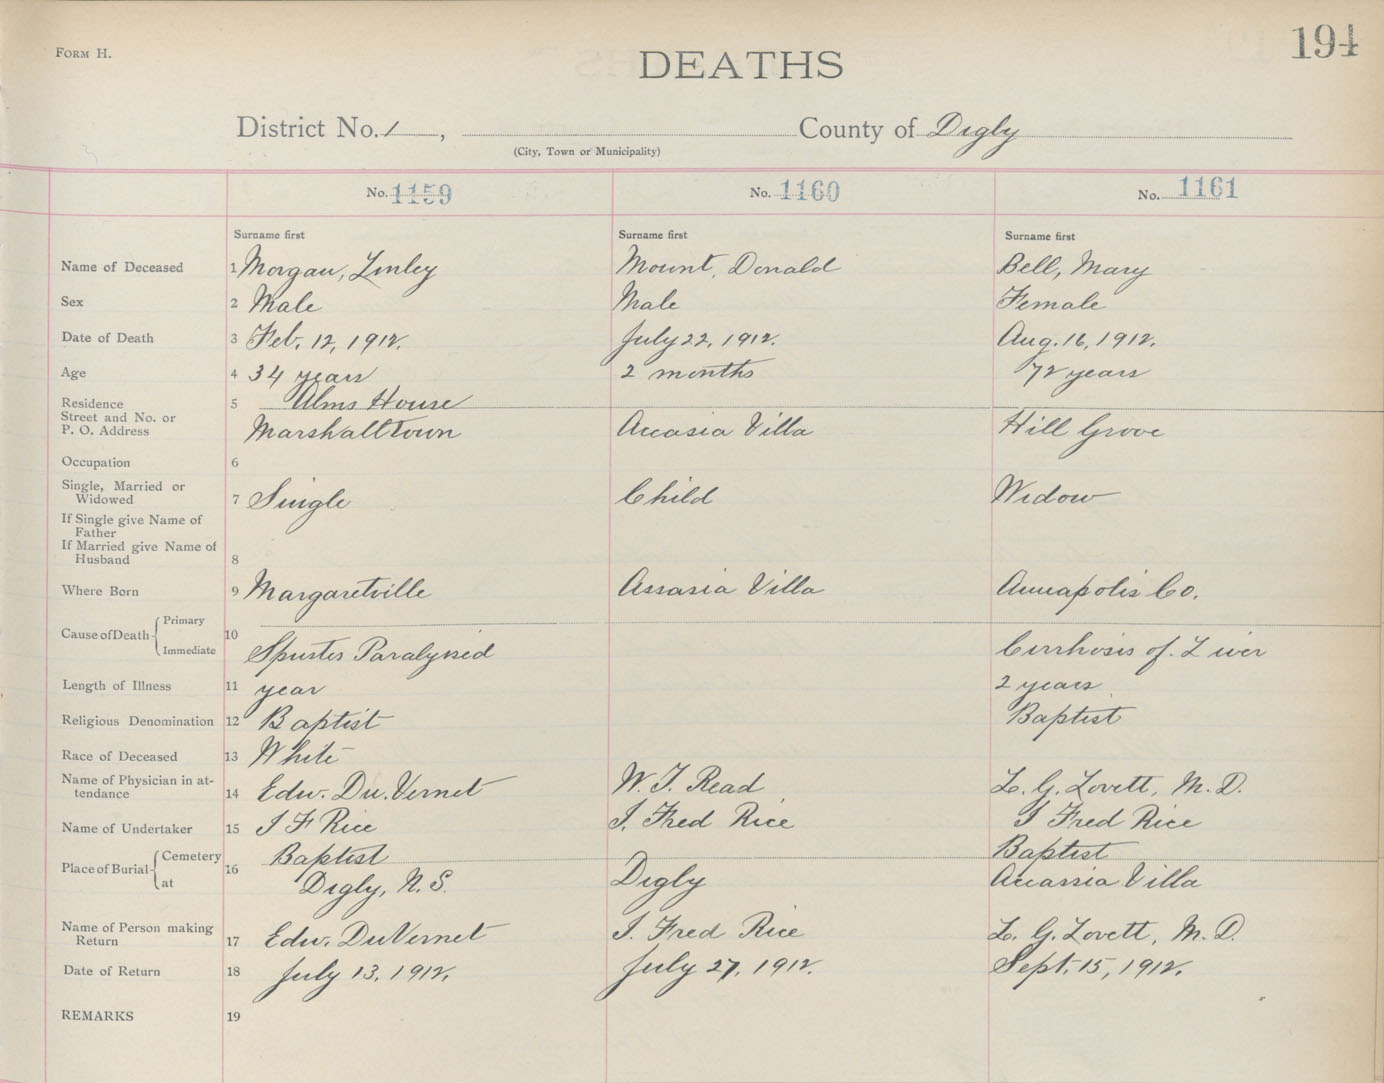 FORM H.
DEATHS
194
District No. 1, County of Digby
(City, Town or Municipality)
No. 1159 No. 1160 No. 1161
Surname first Surname first Surname first
Name of Deceased 1 Morgan, Linley Mount, Donald Bell, Mary
Sex 2 Male Male Female
Date of Death 3 Feb. 12, 1912. July 22, 1912. Aug. 16, 1912.
Age 4 34 years 2 months 72 years
Residence 5 Alms House
Street and No. or
P. O. Address Marshalltown Accasia Villa Hill Grove
Occupation 6
Single, Married or
Widowed 7 Single Child Widow
If Single give Name of
Father
If Married give Name of
Husband 8
Where Born 9 Margaretville Assasia Villa Annapolis Co.
Cause of Death Primary
10
Immediate Paralysied Cirrhosis of Liver
Length of Illness 11 year 2 years
Religious Denomination 12 Baptist Baptist
Race of Deceased 13 White
Name of Physician in at-
tendance 14 Edw. Du. Vernet W. F. Read L. G. Lovett, M. D.
Name of Undertaker 15 I F Rice I. Fred Rice I Fred Rice
Place of Burial Cemetery 16 Baptist Baptist
at Digby, N. S. Digby Accassia Villa
Name of Person making
Return 17 Edw. DuVernet I. Fred Rice L. G. Lovett, M. D.
Date of Return 18 July 13, 1912. July 27, 1912. Sept. 15, 1912.
REMARKS 19